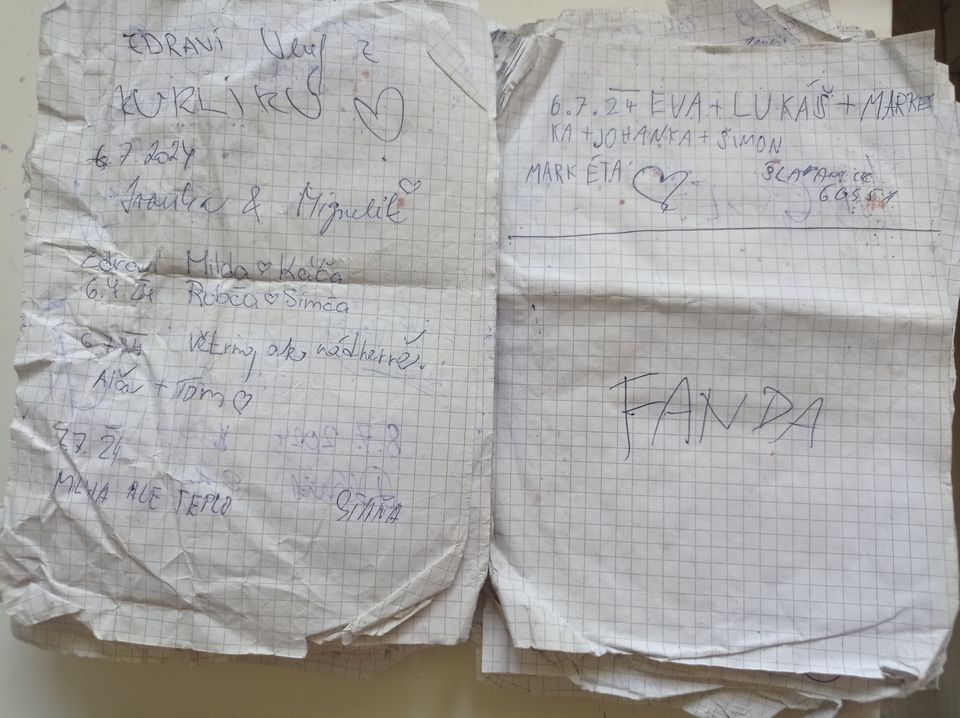 ZDRAVÍ
KURLÍKŮ
6.7.2024
& Miguelit
Zdraví Milda ♡ Káča
6.7.24 Robča ♡ Simča
6.7.24 větrno, ako nádherně.
+ Tom ♡
7.7.24
MLHA ALE TEPLO STÁŇA
6.7.24 EVA + LUKÁŠ + MARKÉT
KA + JOHANKA + ŠIMON
MARKÉTA ŠLAPANICE
66451
FANDA